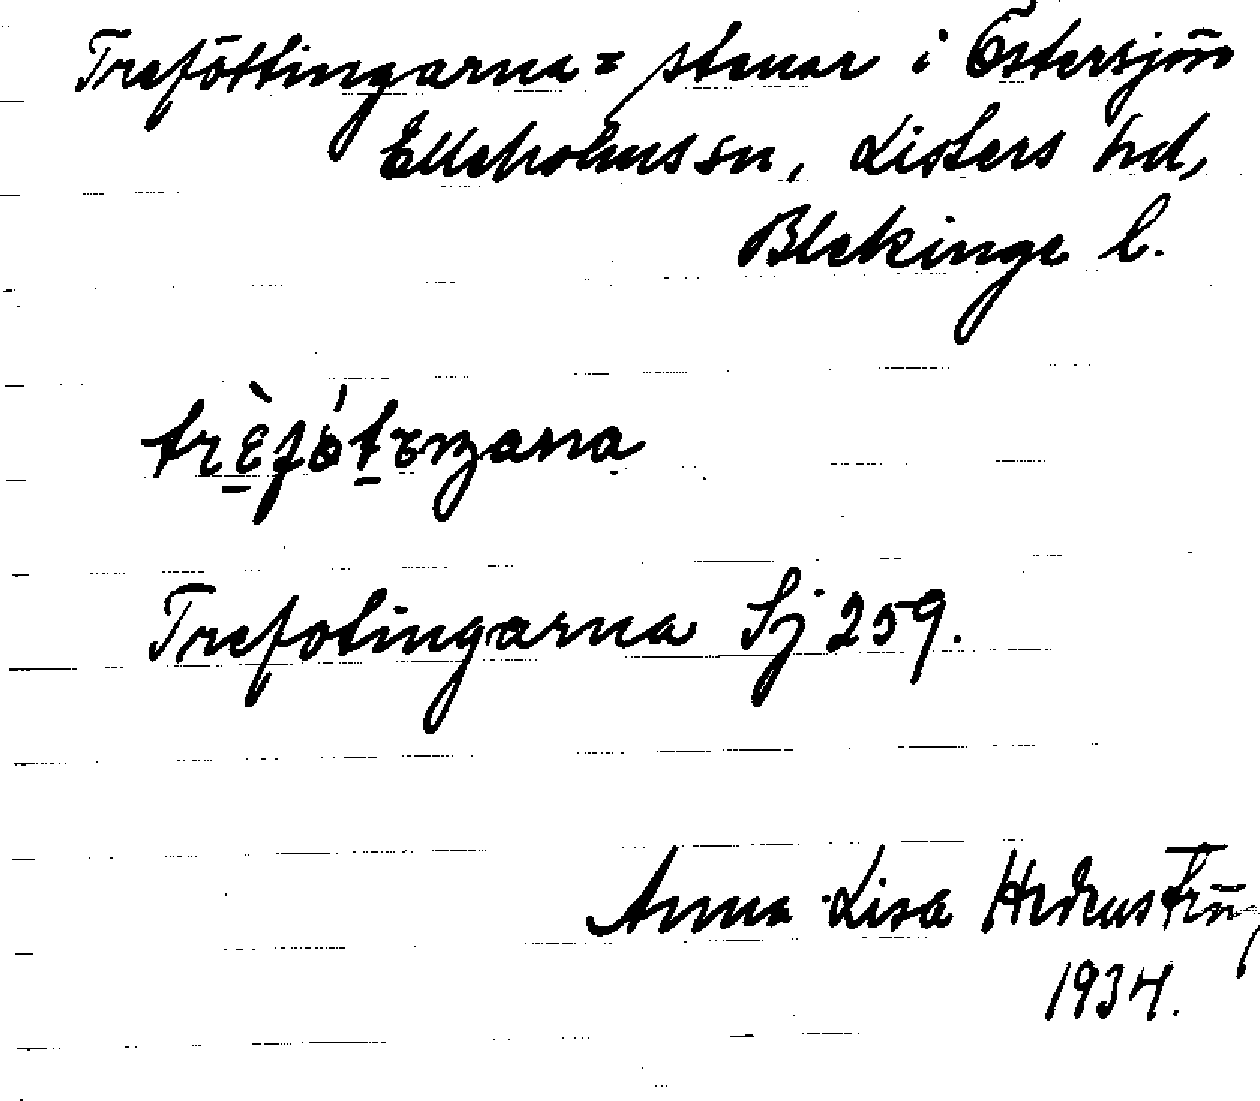 Treföttingarna = stenar i Östersjön
Elleholms sn, Listers hd,
Blekinge l.
Trefotingarna Sj 259.
Anna Lisa Hedenström
1934.